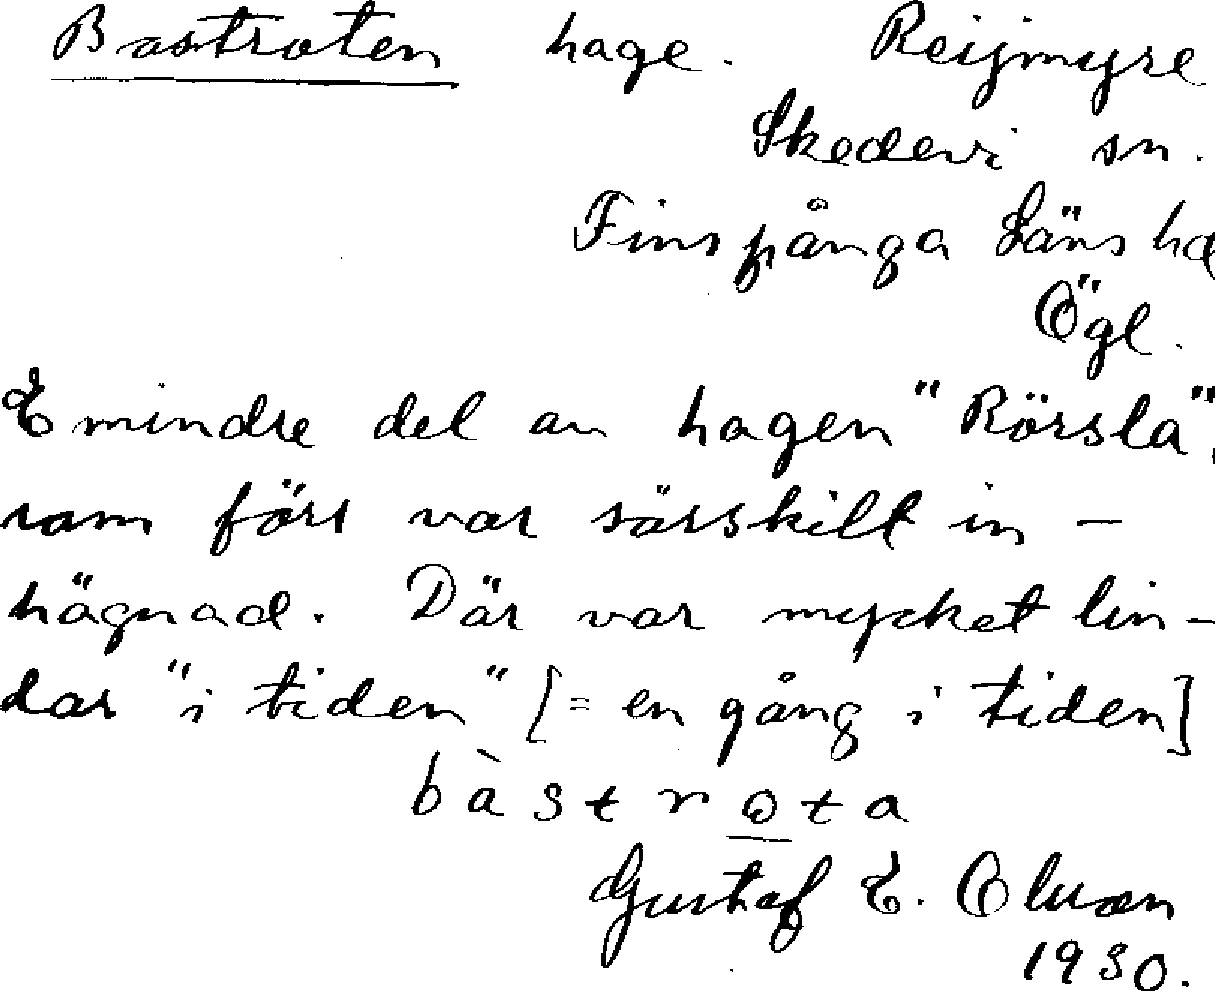 Bastroten hage. Reijmyre
Skedevi sn.
Finspånga Läns hd
Ögl.
E mindre del av hagen "Rörsla",
som förr var särskilt in-
hägnad. Där var mycket lin-
dar "i tiden" [= en gång i tiden]
bàstrota
Gustaf E.
1930.